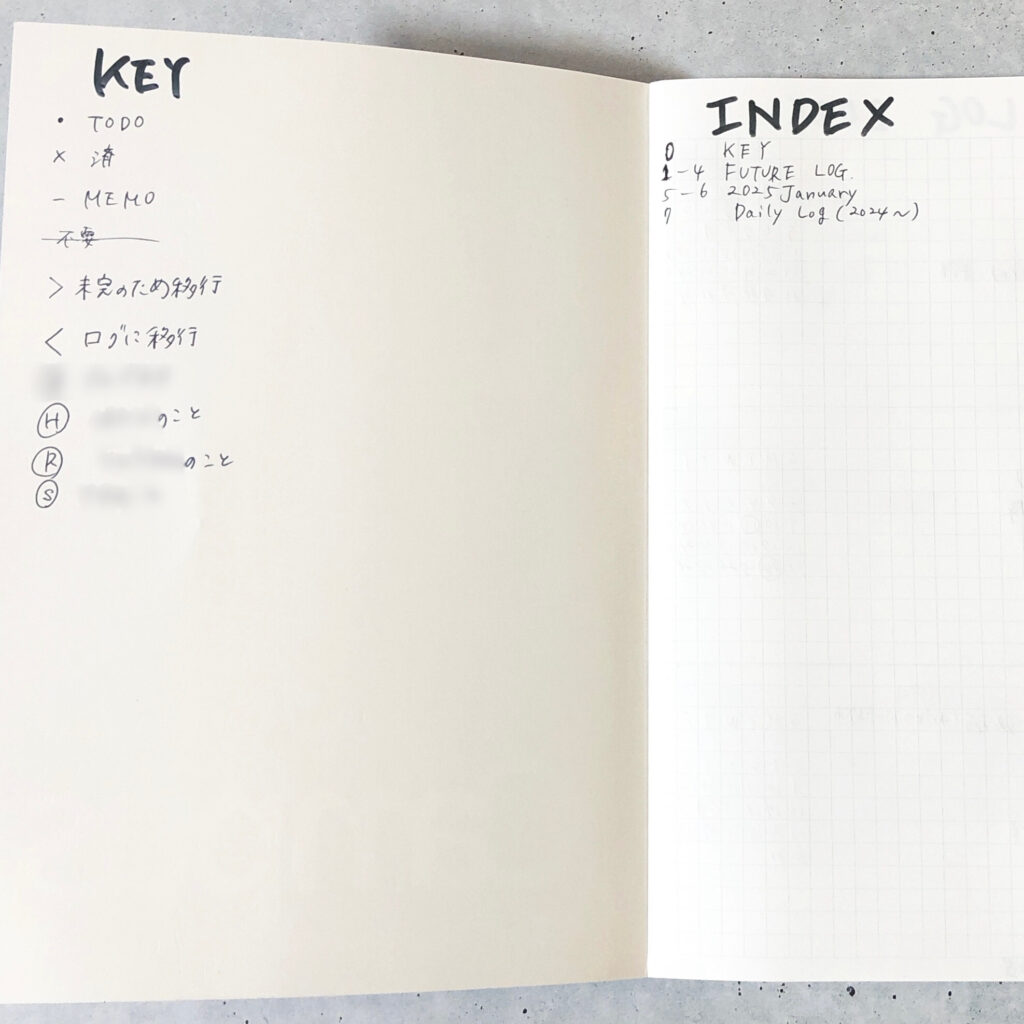 KEY
• TODO
× 済
– MEMO
不要
> 未完のため移行
< ログに移行
Ⓗ のこと
Ⓡ のこと
Ⓢ
INDEX
0 KEY
1-4 FUTURE LOG.
5-6 2025 January
7 Daily Log (2024~)